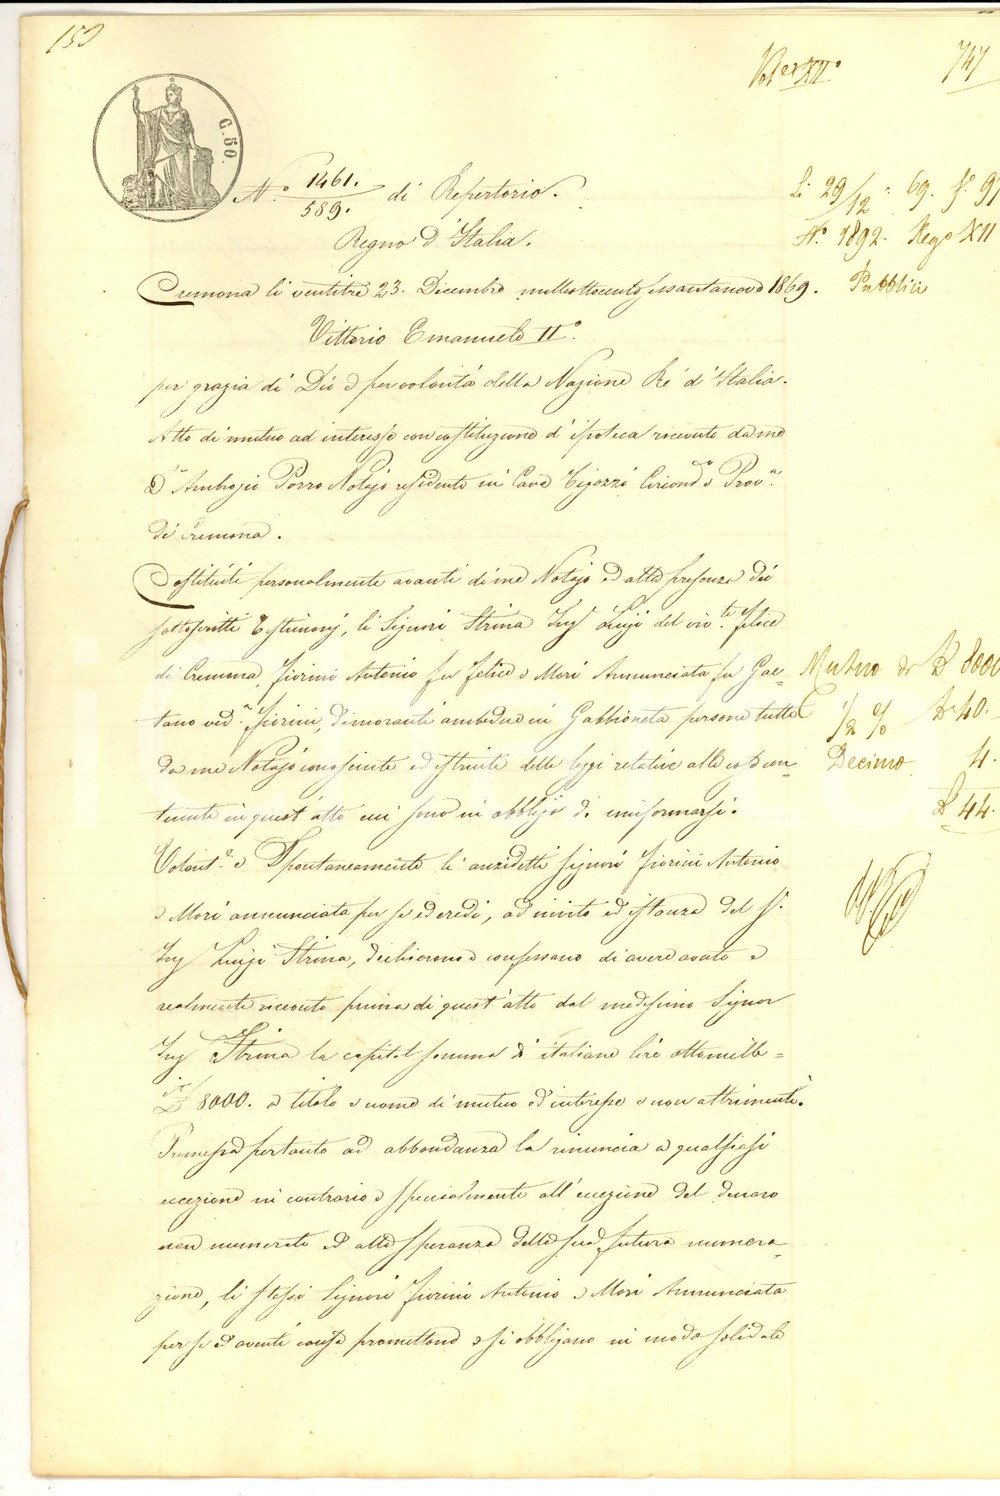 159
747
C. 50.
N.° 1461. / 589. di Repertorio.
Li 29/12 69. f.° 97
N.° 1892. Reg.° XII
Pubblici
Regno d'Italia.
Cremona li ventitre 23. Dicembre mille ottocento sessantanove 1869.
Vittorio Emanuele II.°
per grazia di Dio e per volontà della Nazione Ré d'Italia.
Atto di mutuo ad interesse con costituzione d'ipoteca ricevuto da me
D.r Ambrogio Porro Notajo residente in Cava Tigozzi Circond.o e Prov.a
di Cremona.
Costituiti personalmente avanti di me Notajo ed alla presenza dei
sottoscritti Testimonj, li Signori Strina Ing.r Luigi del viv.te Felice
di Cremona, Fiorini Antonio fu Felice e Mori Annunciata fu Gae-
tano ved.a Fiorini, dimoranti ambedue in Gabbioneta persone tutte
da me Notajo conosciute ed istruite delle leggi relative alle cose con-
tenute in quest'atto cui sono in obbligo di uniformarsi.
Mutuo di L 8000
1/2 % L 40.
Decimo 4.
L 44.
Volont.e e Spontaneamente li anzidetti Signori Fiorini Antonio
e Mori annunciata per se ed eredi, ad invito ed istanza del S.r
Ing Luigi Strina, dichiarono e confessano di avere avuto e
realmente ricevuto prima di quest'atto dal medesimo Signor
Ing Strina la capital somma di italiane lire ottomille =
L 8000. a titolo e nome di mutuo ad interesse e non altrimenti.
Premessa pertanto ad abbondanza la rinuncia a qualsiasi
eccezione in contrario e specialmente all'eccezione del denaro
non numerato ed alla speranza della sua futura numera-
zione, li stessi Signori Fiorini Antonio e Mori Annunciata
per se ed aventi causa promettono e si obbligano in modo solidale